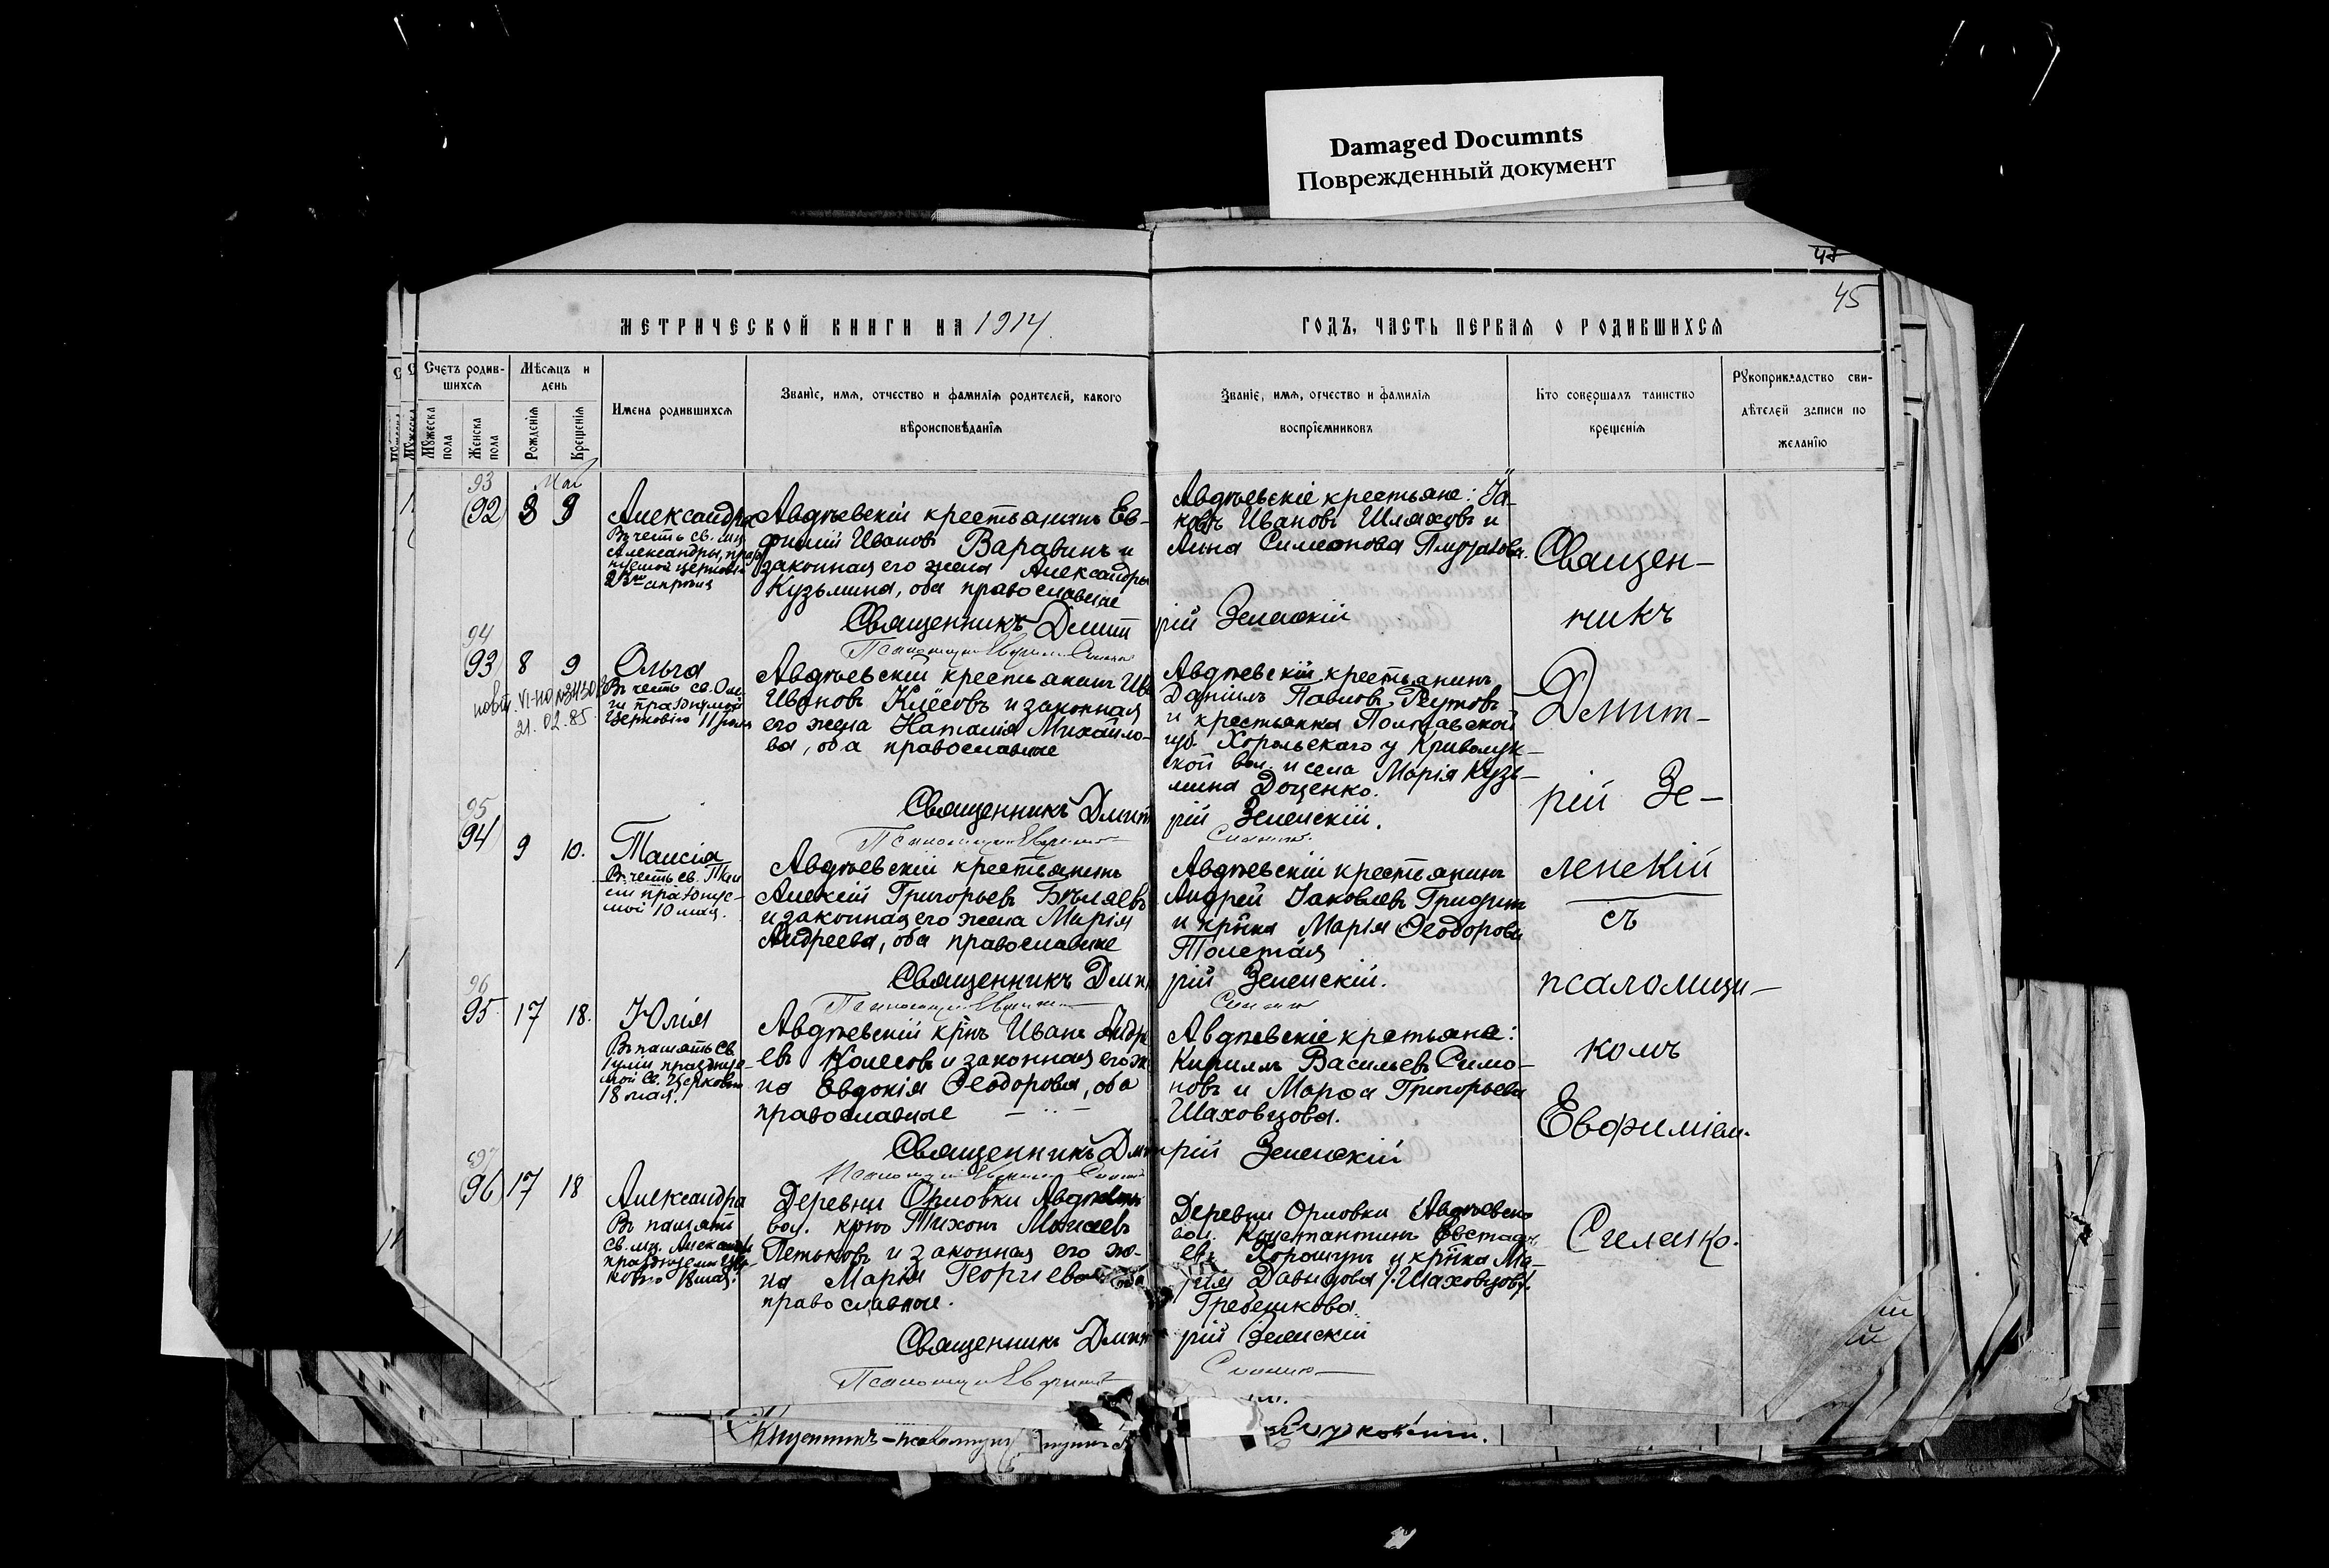 Damaged Documnts
Поврежденный документ
47
45
МЕТРИЧЕСКОЙ КНИГИ НА 1914
ГОДЪ, ЧАСТЬ ПЕРВАЯ О РОДИВШИХСЯ
Счетъ родив-
шихся
Мужеска пола
Женска пола
Мѣсяцъ и
день
Рожденія
Крещенія
Имена родившихся
Званіе, имя, отчество и фамилія родителей, какого
вѣроисповѣданія
Званіе, имя, отчество и фамилія
воспріемниковъ
Кто совершалъ таинство
крещенія
Рукоприкладство сви-
дѣтелей записи по
желанію
Май
93
92 8 9
Александра
Въ честь св. мц.
Александры, праз
нуемой церковью
23го апрѣля
Авдѣевскій крестьянинъ Ев-
фимій Ивановъ Варавинъ и
законная его жена Александра
Кузьмина, оба православные
Авдѣевскіе крестьяне: Іа-
ковъ Ивановъ Шляховъ и
Анна Симеонова
Священникъ Димит
рій Зеленскій
94
93 8 9
21.02.85.
Ольга
Въ честь св. Оль-
ги празднуемой
Церковію 11 іюля
Авдѣевскій крестьянинъ Ив
Ивановъ Клёсовъ и законная
его жена Наталія Михайло-
ва, оба православные
Авдѣевскій крестьянинъ
Даніилъ Павловъ Реутовъ
и крестьянка Полтавской
губ. Хорольскаго у Криволук-
ской вол. и села Марія Кузь-
мина Доценко.
Священникъ Димит
рій Зеленскій.
95
94 9 10.
Таисія
Въ честь св. Таи
сіи празднуе-
мой 10 мая.
Авдѣевскій крестьянинъ
Алексій Григорьевъ Бѣляевъ
и законная его жена Марія
Андреева, оба православные
Авдѣевскій крестьянинъ
Андрей Іаковлевъ
и кр-нка Марія Ѳеодорова
Толстая
Священникъ Дмит
рій Зеленскій.
96
95 17 18.
Юлія
Въ память св.
Іуліи празднуе-
мой св. Церковью
18 мая.
Авдѣевскій кр-нъ Иванъ Андре
евъ Колесовъ и законная его же
на Евдокія Ѳеодорова, оба
православные
Авдѣевскіе кретьяне:
Кириллъ Васильевъ Симо-
новъ и Марѳа Григорьева
Шаховцова.
Священникъ Дми
трій Зеленскій
97
96 17 18
Александра
Въ память
св. мц. Александ
празднуемой Цер-
ковью 18 мая.
Деревни Орловки Авдѣевск
вол. кр-нъ Тихонъ Моисеевъ
Петьковъ и законная его же-
на Марія Георгіева оба
православные.
Деревни Орловки Авдѣевско
вол. Константинъ Евстаѳь
евъ Хорошунъ и кр-нка Ма-
рія Давидова /Шаховцова/
Гребешкова.
Священникъ Дмит
рій Зеленскій
Священ-
никъ
Димит-
рій Зе-
ленскій
съ
псаломщи-
комъ
Евфиміем.